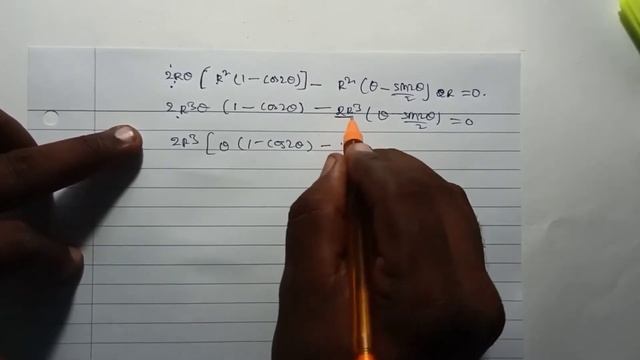 2Rθ [R²(1-cos2θ)] - R²(θ-sin2θ/2) 2R = 0.
2R³θ (1-cos2θ) - 2R³(θ-sin2θ/2) = 0
2R³ [θ(1-cos2θ) -